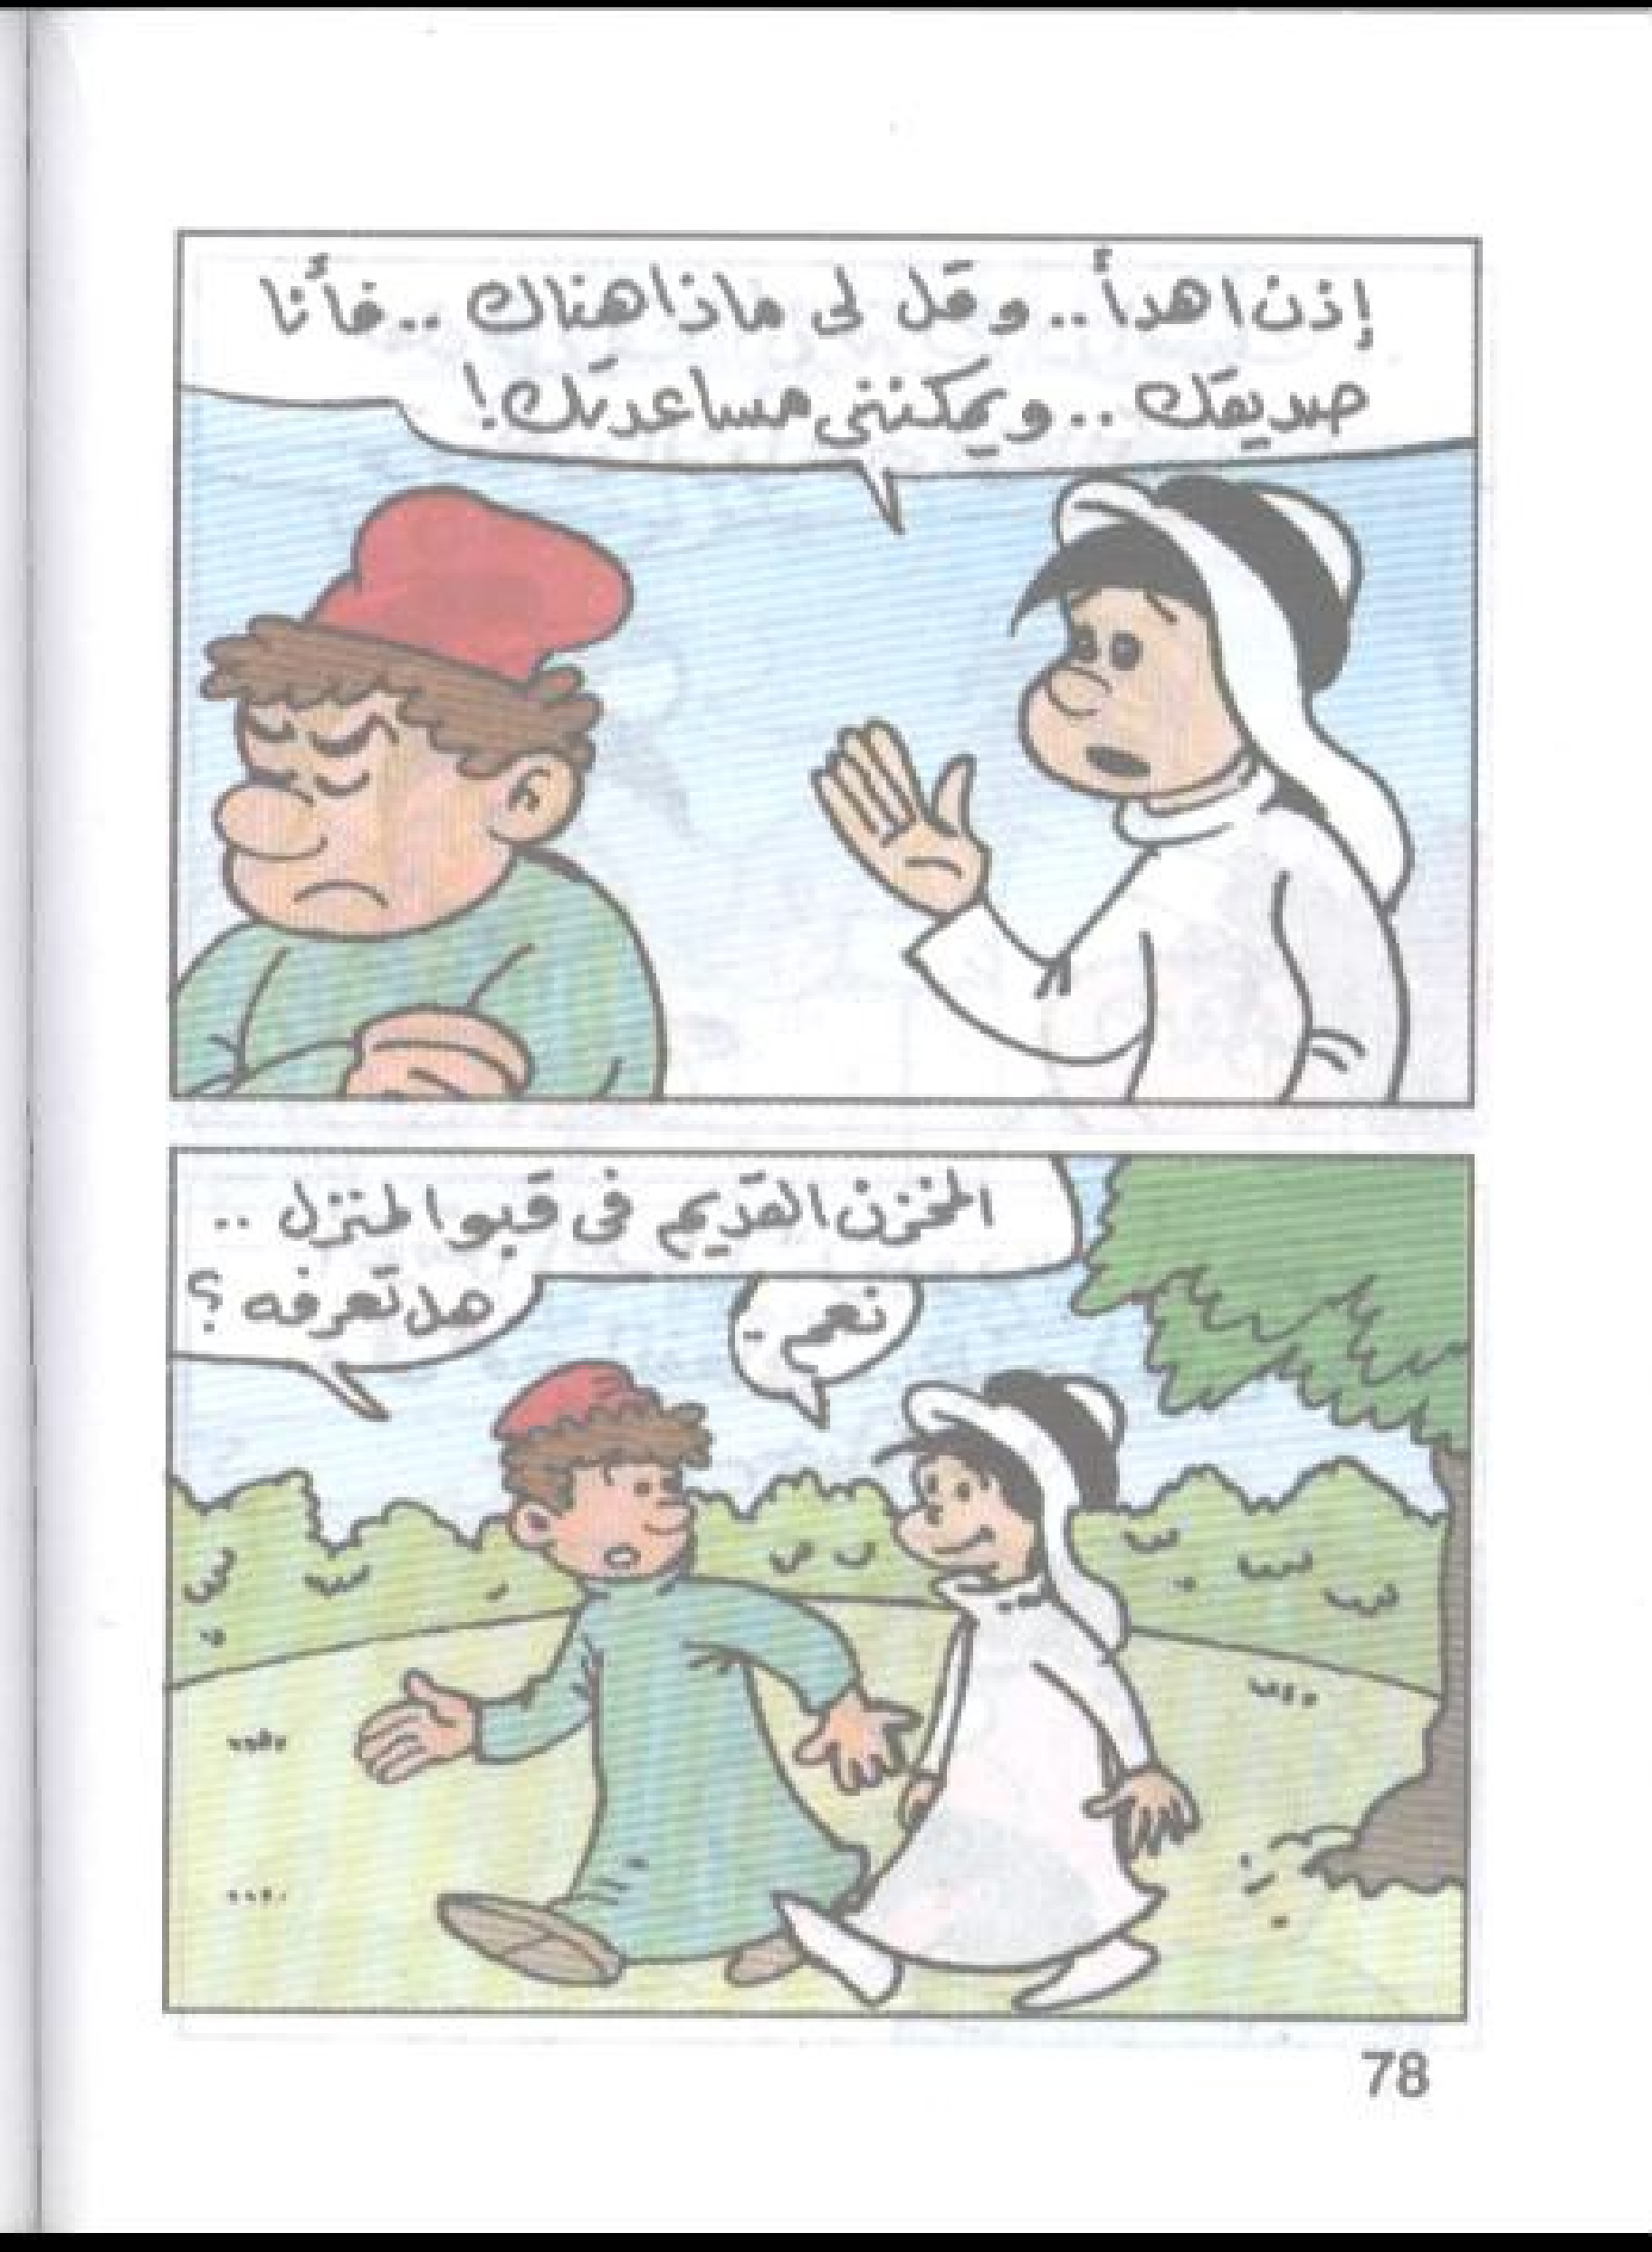 إذن اهدأ.. وقل لى ماذا هناك .. فأنا
صديقك .. ويمكننى مساعدتك!
المخزن القديم فى قبو المنزل ..
هل تعرفه؟
نعم ..
78